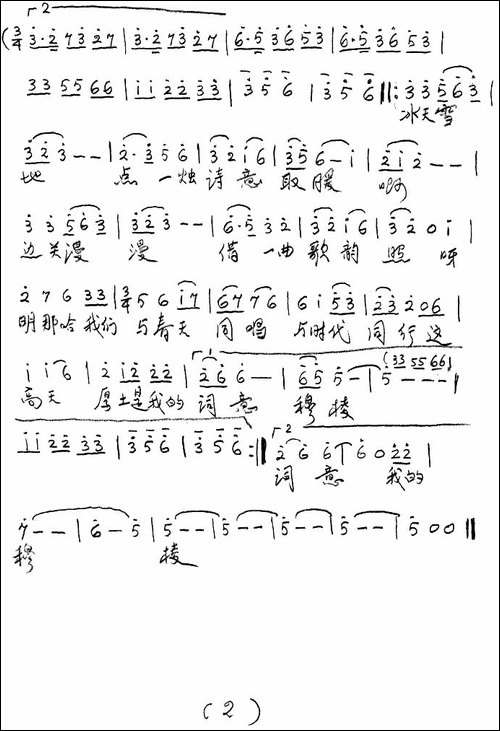 2
(3/4 3·2 7 3 2 7 | 3·2 7 3 2 7 | 6·5 3 6 5 3 | 6·5 3 6 5 3 |
3 3 5 5 6 6 | i i 2 2 3 3 | 3 5 6 | 3 5 6 ‖: 3 3 5 6 3 |
冰天雪
3 2 3 - - | 2·3 5 6 | 3 2 i 6 | 3 5 6 - i | 2 i 2 - - |
地 点一烛诗意取暖 啊
3 3 5 6 3 | 3 2 3 - - | 6·5 3 2 | 3 2 i 6 | 3 2 0 i |
边关漫 漫 借一曲歌韵照 呀
2 7 6 3 3 | 3/4 5 6 i 7 | 6 7 7 6 | 6 i 5 3 | 2 3 2 0 6 |
明那吟我们与春天同唱与时代同行这
i i 6 | 2 i 2 2 2 | 2 6 6 - | 6 5 5 - | 5 - - - |
(3 3 5 5 6 6)
高天 厚土是我的词意 穆棱
i i 2 2 3 3 | 3 5 6 | 3 5 6 :‖ 2 6 6 | 6 0 2 2 |
词意 我的
7 - - | 6 - 5 | 5 - - | 5 - - | 5 - - | 5 - - | 5 0 0 ‖
穆 棱
(2)